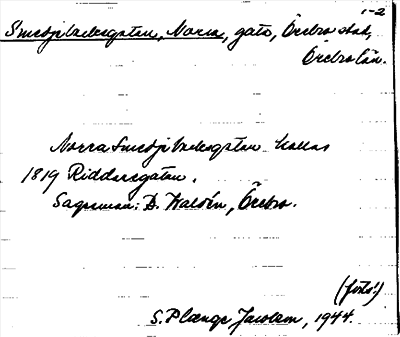 1-2
Smedjebacksgatan, Norra, gata, Örebro stad,
Örebro län.
Norra Smedjebacksgatan kallas
1819 Riddaregatan.
Sagesman: D. Kaldén, Örebro.
(forts!)
S. Plænge Jacobson, 1944.